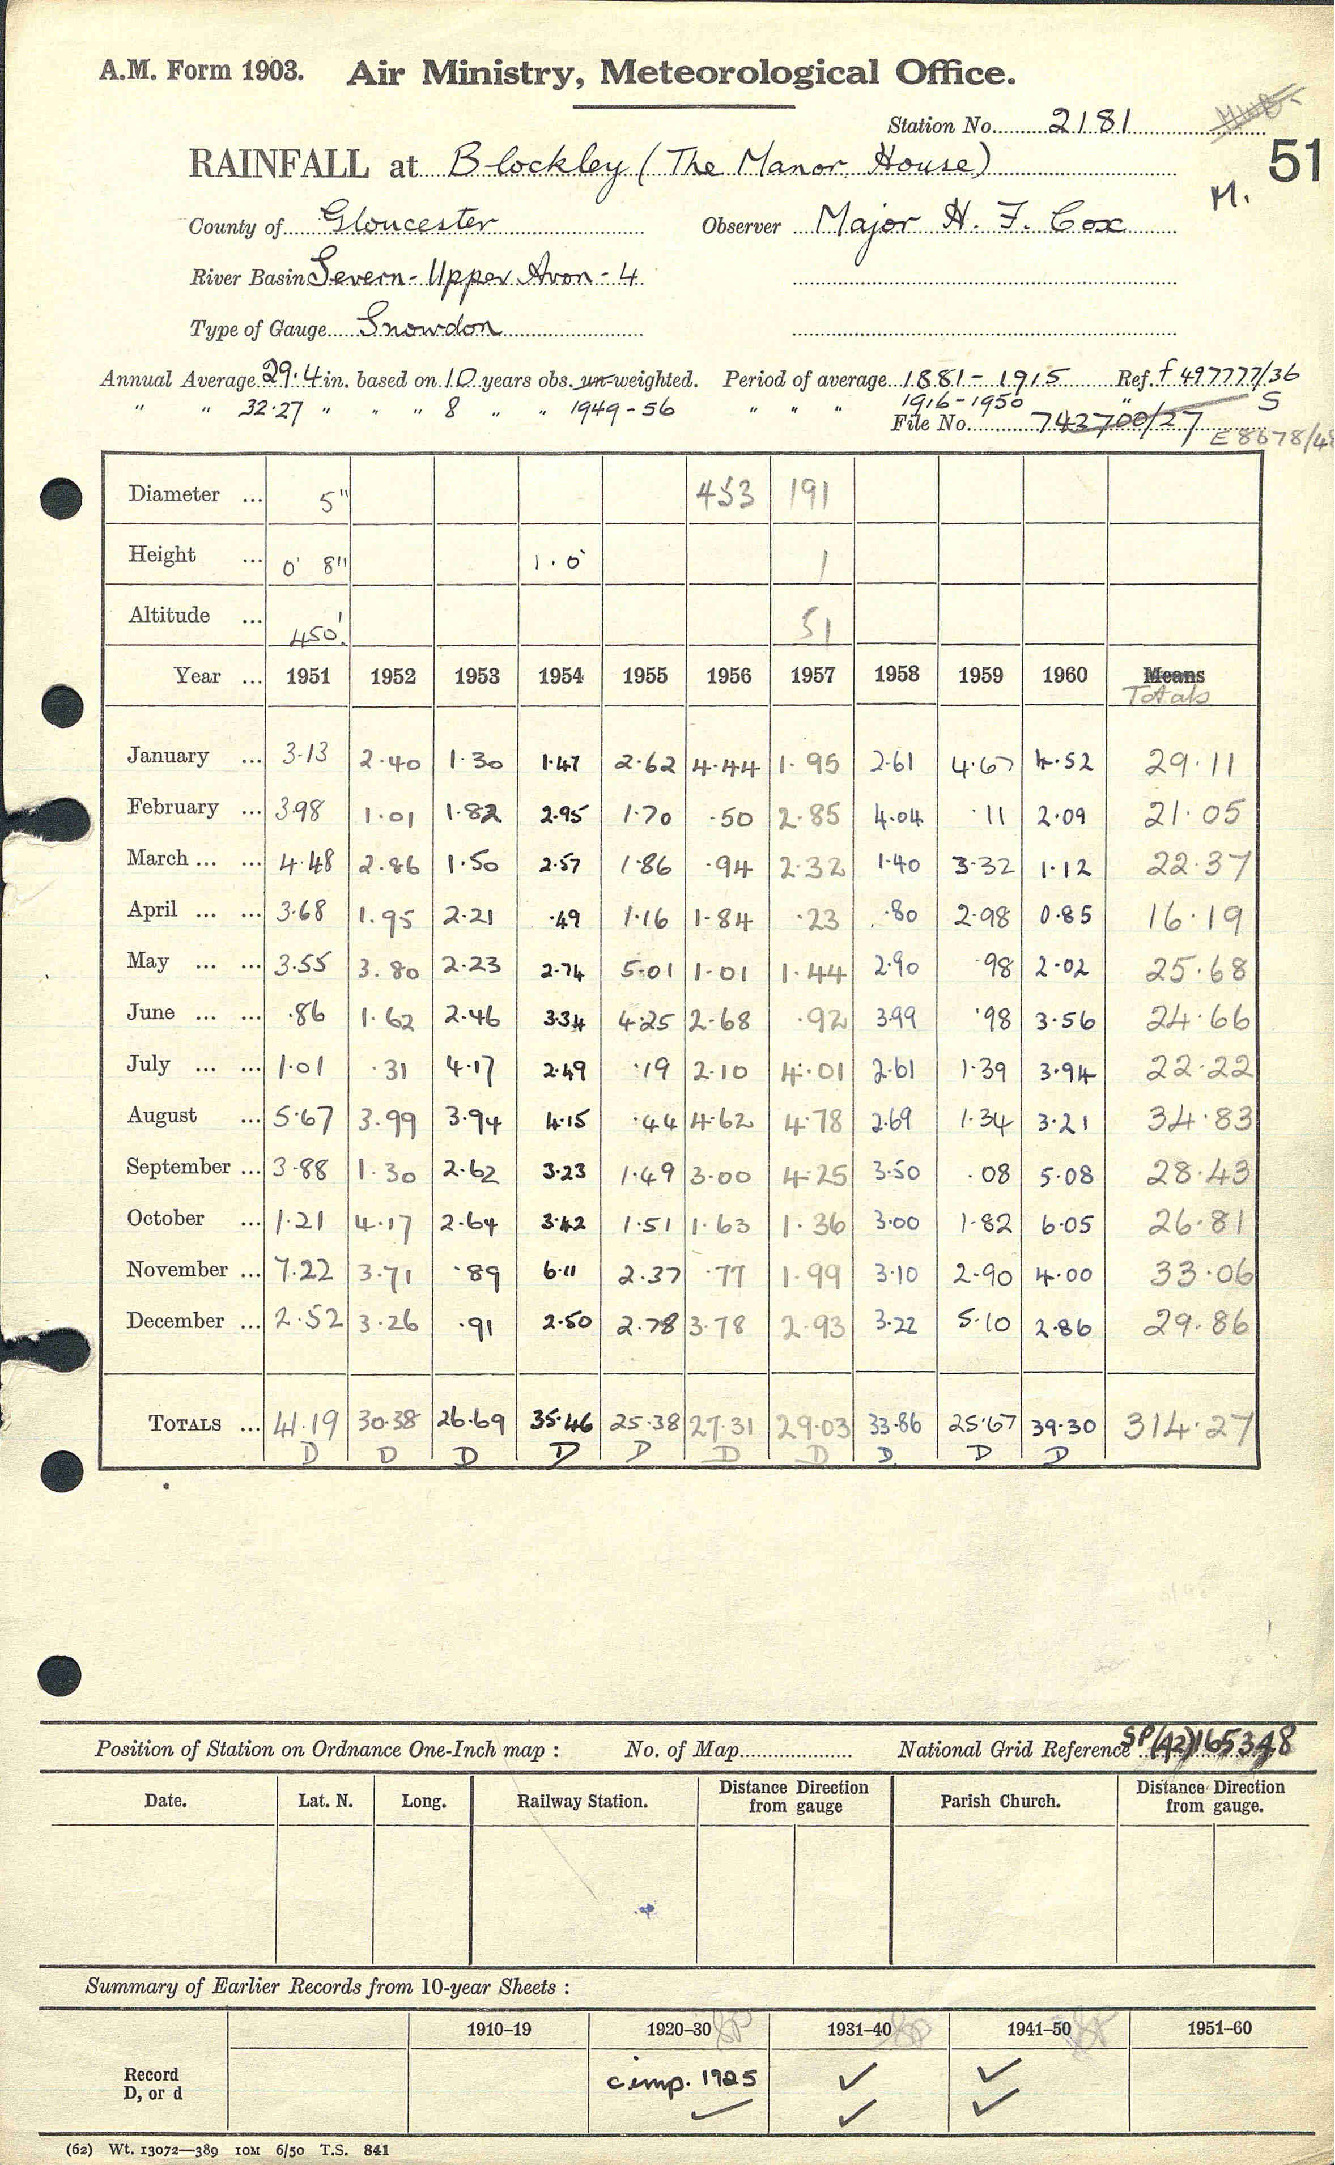 A.M. Form 1903. Air Ministry, Meteorological Office.
Station No. 2181
51
RAINFALL at Blockley (The Manor House)
M.
County of Gloucester Observer Major H. F. Cox
River Basin Severn - Upper Avon - 4
Type of Gauge Snowdon
Annual Average 29.4 in. based on 10 years obs. un-weighted. Period of average 1881 - 1915 Ref. f 497777/36
" " 32.27 " " " 8 " " 1949-56 " " " 1916-1950 " S
File No. 743700/27 E 8678/48
Diameter ... 5" 453 191
Height ... 0' 8" 1.0' 1
Altitude ... 450' 51
Year ... 1951 1952 1953 1954 1955 1956 1957 1958 1959 1960 Means
Totals
January ... 3.13 2.40 1.30 1.47 2.62 4.44 1.95 2.61 4.67 4.52 29.11
February ... 3.98 1.01 1.82 2.95 1.70 .50 2.85 4.04 .11 2.09 21.05
March ... ... 4.48 2.86 1.50 2.57 1.86 .94 2.32 1.40 3.32 1.12 22.37
April ... ... 3.68 1.95 2.21 .49 1.16 1.84 .23 .80 2.98 0.85 16.19
May ... ... 3.55 3.80 2.23 2.74 5.01 1.01 1.44 2.90 .98 2.02 25.68
June ... ... .86 1.62 2.46 3.34 4.25 2.68 .92 3.99 .98 3.56 24.66
July ... ... 1.01 .31 4.17 2.49 .19 2.10 4.01 2.61 1.39 3.94 22.22
August ... 5.67 3.99 3.94 4.15 .44 4.62 4.78 2.69 1.34 3.21 34.83
September ... 3.88 1.30 2.62 3.23 1.49 3.00 4.25 3.50 .08 5.08 28.43
October ... 1.21 4.17 2.64 3.42 1.51 1.63 1.36 3.00 1.82 6.05 26.81
November ... 7.22 3.71 .89 6.11 2.37 .77 1.99 3.10 2.90 4.00 33.06
December ... 2.52 3.26 .91 2.50 2.78 3.78 2.93 3.22 5.10 2.86 29.86
TOTALS ... 41.19 30.38 26.69 35.46 25.38 27.31 29.03 33.86 25.67 39.30 314.27
D D D D D D D D D D
Position of Station on Ordnance One-Inch map : No. of Map National Grid Reference SP(42)165348
Date. Lat. N. Long. Railway Station. Distance Direction from gauge Parish Church. Distance Direction from gauge.
Summary of Earlier Records from 10-year Sheets :
1910–19 1920–30 1931–40 1941–50 1951–60
Record D, or d comp. 1925 ✓ ✓
✓ ✓ ✓
(62) Wt. 13072—389 10M 6/50 T.S. 841